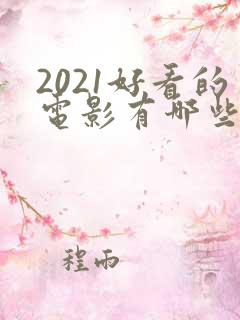 2021好看的
電影有哪些
程雨